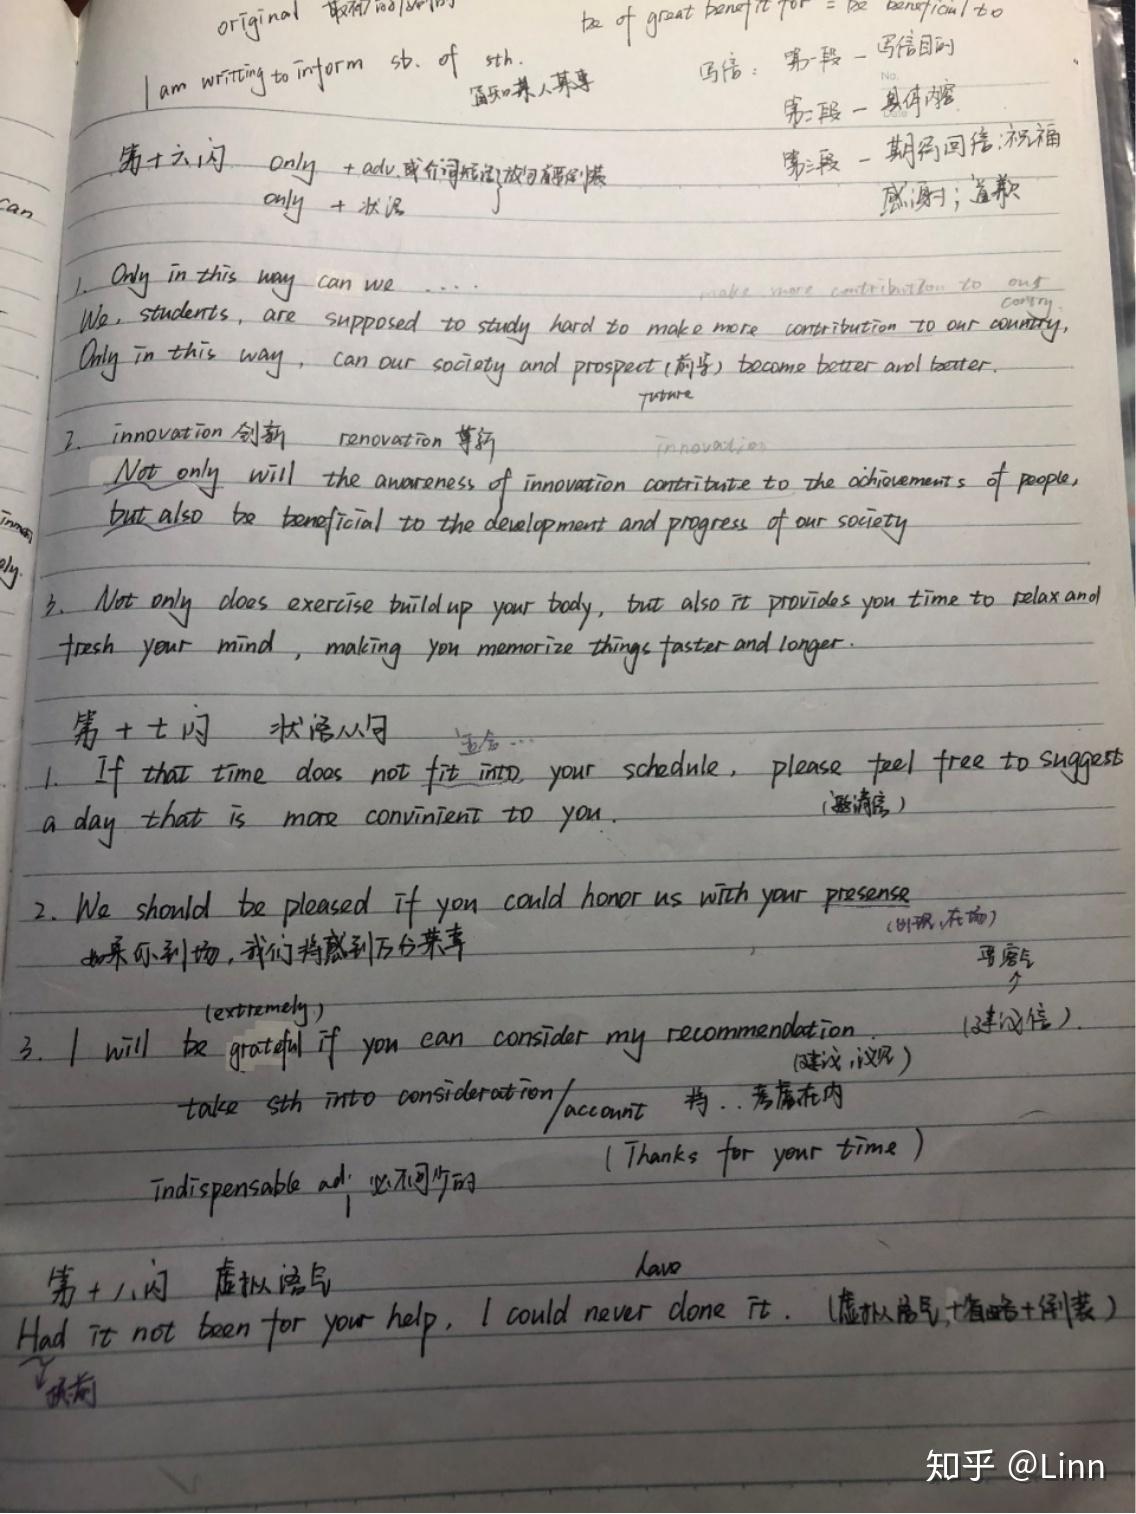 original
be of great benefit for = be beneficial to
I am writting to inform sb. of sth.
告知某人某事
写信: 第一段 - 写信目的
No.
第二段 - 具体内容
第三段 - 期待回信;祝福
感谢;道歉
第十六闪 only + adv. 或介词短语 放句首要倒装
only + 状语
1. Only in this way can we ....
make more contribution to our
contry
We, students, are supposed to study hard to make more contribution to our country,
Only in this way, can our society and prospect (前景) become better and better.
future
2. innovation 创新 renovation 革新
innovation
Not only will the awareness of innovation contribute to the achievements of people,
but also be beneficial to the development and progress of our society
3. Not only does exercise build up your body, but also it provides you time to relax and
fresh your mind, making you memorize things faster and longer.
第十七闪 状语从句
适合...
1. If that time does not fit into your schedule, please feel free to suggest
(邀请信)
a day that is more convinient to you.
2. We should be pleased if you could honor us with your presense
(出现,在场)
如果你到场,我们将感到万分荣幸
(extremely)
3. I will be grateful if you can consider my recommendation. (建议信).
(建议,议见)
take sth into consideration/account 将..考虑在内
(Thanks for your time)
indispensable adj 必不可少的
第十八闪 虚拟语气
have
Had it not been for your help, I could never done it. (虚拟语气+省略+倒装)
提前
知乎 @Linn